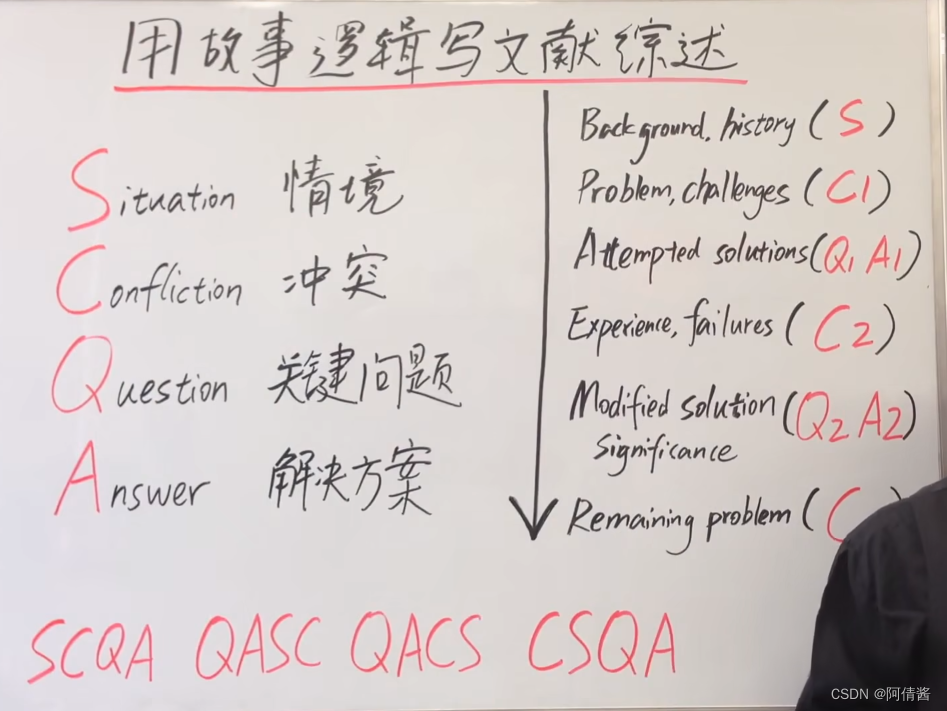 用故事逻辑写文献综述
Situation 情境
Confliction 冲突
Question 关键问题
Answer 解决方案
Background, history (S)
Problem, challenges (C1)
Attempted solutions (Q1 A1)
Experience, failures (C2)
Modified solution (Q2 A2)
significance
Remaining problem (C
SCQA QASC QACS CSQA
CSDN @阿倩酱